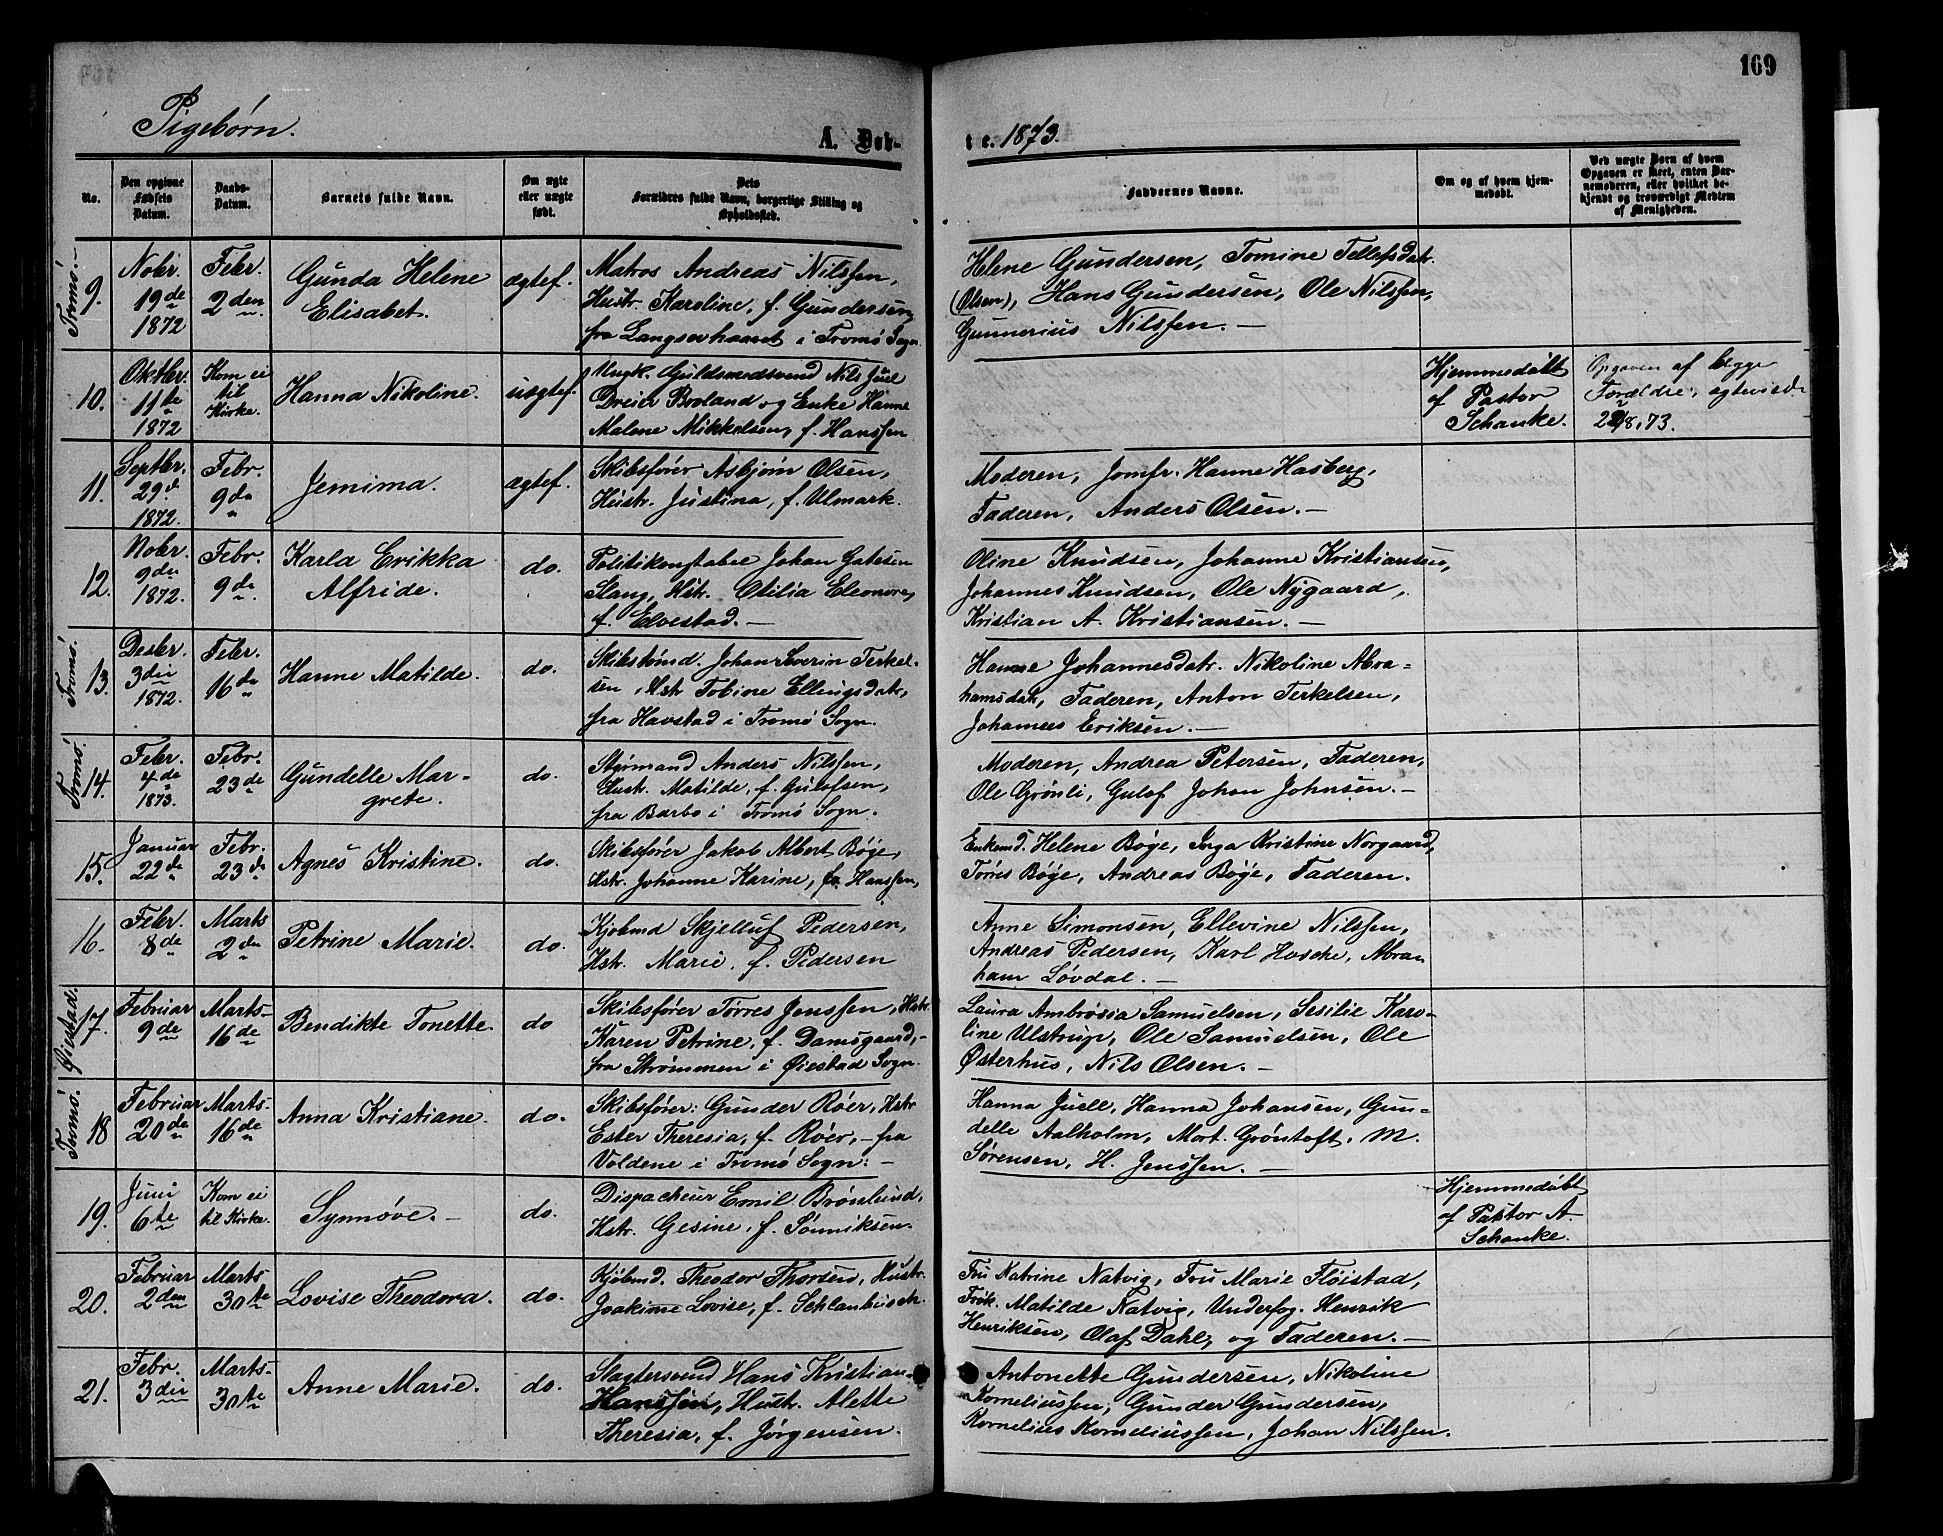 169
Pigebørn.
A. Døb-
te. 1873.
No.
Den opgivne
Fødsels
Datum.
Daabs-
Datum.
Barnets fulde Navn.
Om ægte
eller uægte
født.
Dets
Forældres fulde Navn, borgerlige Stilling og
Opholdssted.
Faddernes Navne.
Om og af hvem hjem-
medøbt.
Ved uægte Børn af hvem
Opgaven er skeet, enten Bar-
nemoderen, eller hvilket be-
kjendt og troværdigt Medlem
af Menigheden.
Tromø.
9.
Nobr.
19de
1872
Febr.
2den
Gunda Helene
Elisabet.
ægtef.
Matros Andreas Nilssen,
Hustr. Karoline, f. Gundersen
fra Langsævhaaret i Tromø Sogn.
Helene Gundersen, Tomine Tellefsdatr.
(Olsen), Hans Gundersen, Ole Nilssen,
Gunnerius Nilssen. —
10.
Oktbr.
11te
1872
Kom ei
til
Kirke.
Hanna Nikoline.
uægtef.
Ungk. Guldsmedsvend Nils Juel
Dreier Broland og Enke Hanne
Malene Mikkelsen, f. Hanssen
Hjemmedøbt
af Pastor
Schanke.
Opgaven af begge
Forældre,
11.
Septbr.
29d
1872.
Febr.
9da
Jemima.
ægtef.
Skibsfører Asbjørn Olsen,
Hustr. Justina, f. Ulmark.
Moderen, Jomfr. Hanne Hasberg,
Faderen, Anders Olsen. —
12.
Nobr.
9de
1872.
Febr.
9de
Karla Erikka
Alfride.
do.
Politikonstabel Johan Gabesen
Slang, Hstr. Otilia Eleonore,
f. Elvestad. —
Oline Knudsen, Johanne Kristiansen,
Johannes Knudsen, Ole Nygaard,
Kristian A. Kristiansen. —
Tromø.
13.
Desbr.
3die
1872.
Febr.
16de
Hanne Matilde.
do.
Skibstømd. Johan Severin Terkel-
sen, Hstr Tobine Ellingsdatr,
fra Havstad i Tromø Sogn.
Hanne Johannesdatr. Nikoline Abra-
hamsdatr, Faderen, Anton Terkelsen,
Johannes Eriksen. —
Tromø.
14.
Febr.
4de
1873.
Febr.
23de
Gundelle Mar-
grete.
do.
Styrmand Anders Nilssen,
Hustr. Matilde, f. Gulofsen,
fra Barbo i Tromø Sogn.
Moderen, Andrea Petersen, Faderen,
Ole Grønli, Gulof Johan Johnsen. —
15.
Januar
22de
Febr.
23de
Agnes Kristine.
do.
Skibsfører Jakob Albert Bøge,
Hstr. Johanne Karine, f. Hanssen,
Enkemd. Helene Bøge, Inga Kristine Norgaard,
Tørres Bøge, Andreas Bøge, Faderen.
16.
Febr.
8de
Marts
2den
Petrine Marie.
do.
Kjøbmd Skjelluf Pedersen,
Hstr. Marie, f. Pedersen
Anne Simonsen, Ellevine Nilssen,
Andreas Pedersen, Karl Hosche, Abra-
ham Løvdal. —
Øiestad.
17.
Februar
9de
Marts
16de
Bendikte Tonette.
do
Skibsfører Tørres Jenssen, Hstr.
Karen Petrine, f. Damsgaard, -
fra Strømmen i Øiestad Sogn.
Laura Ambrosia Samuelsen, Sesilie Karo-
line Ulstrup, Ole Samuelsen, Ole
Østerhus, Nils Olsen. —
Tromø.
18
Februar
20de
Marts
16de
Anna Kristiane.
do.
Skibsfører: Gunder Røer, Hstr
Ester Theresia, f. Røer, - fra
Voldene i Tromø Sogn: -
Hanna Juell, Hanna Johansen, Gun-
delle Aalholm, Mort. Grøntoft, M.
Sørensen, H. Jenssen. —
19.
Juni
6te
Kom ei
til Kirke.
Synnøve. -
do.
Dispacheur Emil Brønlund,
Hstr. Gesine, f. Sønniksen.
Hjemmedøbt
af Pastor A.
Schanke.
20.
Februar
2den
Marts
30te
Lovise Theodora.
do.
Kjøbmd. Theodor Thorsen, Hustr.
Joakime Lovise, f. Schlanbusch.
Fru Katrine Natvig, Fru Marie Fløistad,
Frøk. Matilde Natvig, Underfog. Henrik
Henriksen, Olaf Dahl, og Faderen. —
21.
Febr.
3die
Marts
30te
Anne Marie.
do.
Slagtersvend Hans Kristian
Hanssen, Hustr. Alette
Theresia, f. Jørgensen.
Antonette Gundersen, Nikoline
Korneliussen, Gunder Gundersen,
Kornelius Korneliussen, Johan Nilssen.